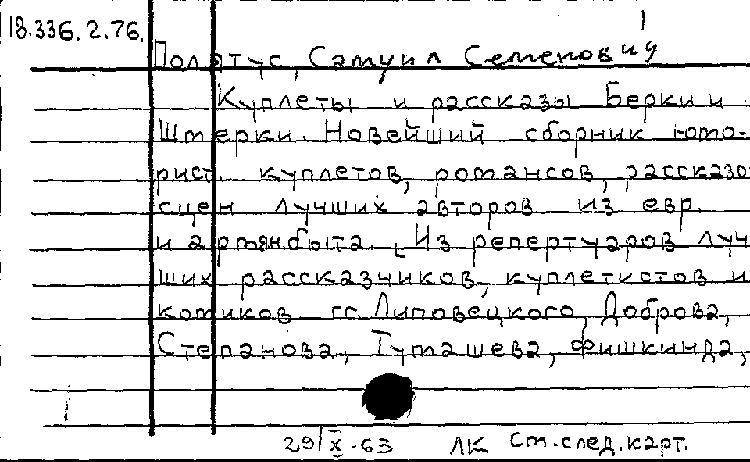 18.336.2.76.
1
Полятус, Самуил Семенович
Куплеты и рассказы Берки и
Штерки. Новейший сборник юмо-
рист. куплетов, романсов, рассказо
сцен лучших авторов из евр.
и армян быта. [Из репертуаров луч
ших рассказчиков, куплетистов и
комиков гг. Липовецкого, Доброва,
Степанова, Тумашева, Фишкинда,
29/X-63 ЛК См.след.карт.